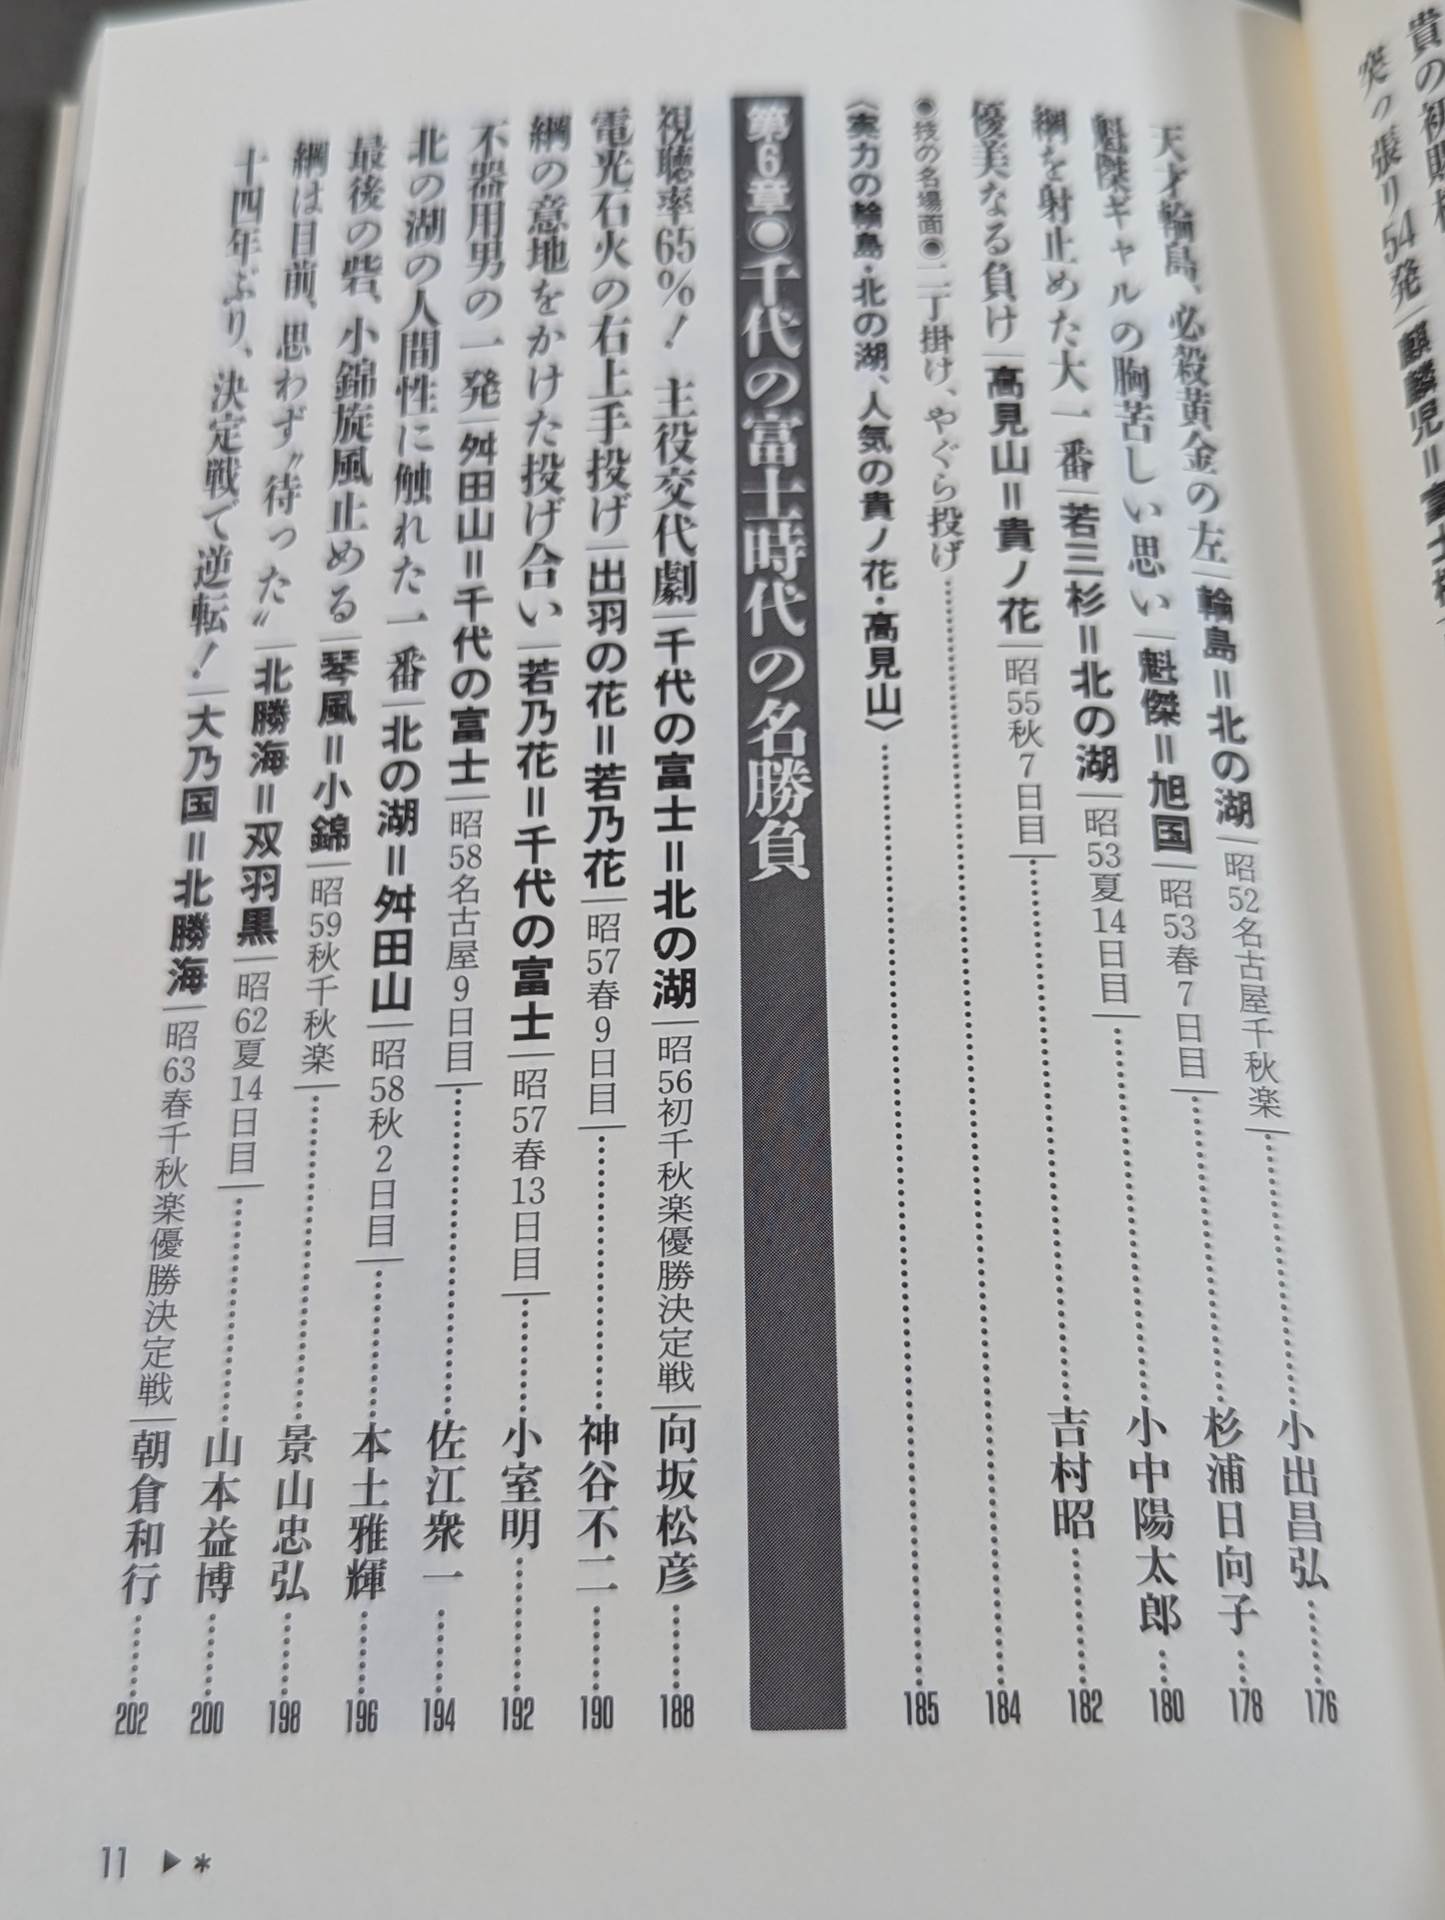 貴の初
突っ張り54発│麒麟児＝富士櫻
天才輪島、必殺黄金の左│輪島＝北の湖│昭52名古屋千秋楽│……小出昌弘……176
魁傑ギャルの胸苦しい思い│魁傑＝旭国│昭53春7日目│……杉浦日向子……178
綱を射止めた大一番│若三杉＝北の湖│昭53夏14日目│……小中陽太郎……180
優美なる負け│高見山＝貴ノ花│昭55秋7日目│……吉村昭……182
●技の名場面●二丁掛け、やぐら投げ……184
〈実力の輪島・北の湖、人気の貴ノ花・高見山〉……185
第6章○千代の富士時代の名勝負
視聴率65%！ 主役交代劇│千代の富士＝北の湖│昭56初千秋楽優勝決定戦│向坂松彦……188
電光石火の右上手投げ│出羽の花＝若乃花│昭57春9日目│……神谷不二……190
綱の意地をかけた投げ合い│若乃花＝千代の富士│昭57春13日目│……小室明……192
不器用男の一発│舛田山＝千代の富士│昭58名古屋9日目│……佐江衆一……194
北の湖の人間性に触れた一番│北の湖＝舛田山│昭58秋2日目│……本土雅輝……196
最後の砦、小錦旋風止める│琴風＝小錦│昭59秋千秋楽│……景山忠弘……198
綱は目前、思わず〝待った〟│北勝海＝双羽黒│昭62夏14日目│……山本益博……200
十四年ぶり、決定戦で逆転！│大乃国＝北勝海│昭63春千秋楽優勝決定戦│朝倉和行……202
11 ▶ *